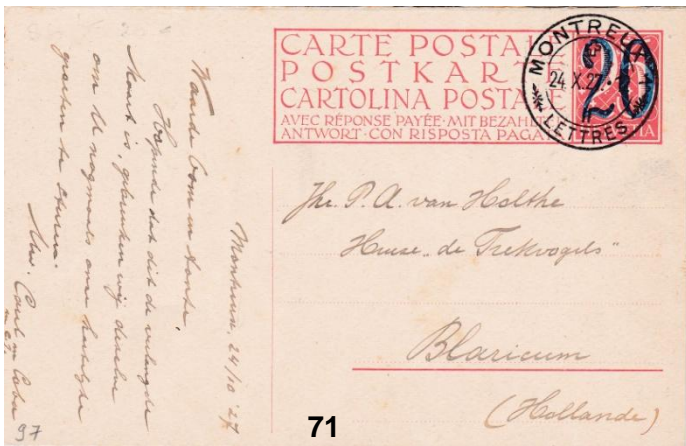 CARTE POSTALE
POSTKARTE
CARTOLINA POSTALE
AVEC RÉPONSE PAYÉE · MIT BEZAHL
ANTWORT · CON RISPOSTA PAGA
MONTREUX
24.X.27
LETTRES
20
Jhr. P. A. van Holthe
Huize „de Trekvogels"
Blaricum
(Hollande)
Montreux, 24/10 '27
Waarde Oom en tante,
Hopende dat dit de verlangde
kaart is, gebruiken wij dezelve
om U nogmaals onze hartelijke
groeten te sturen.
97
71